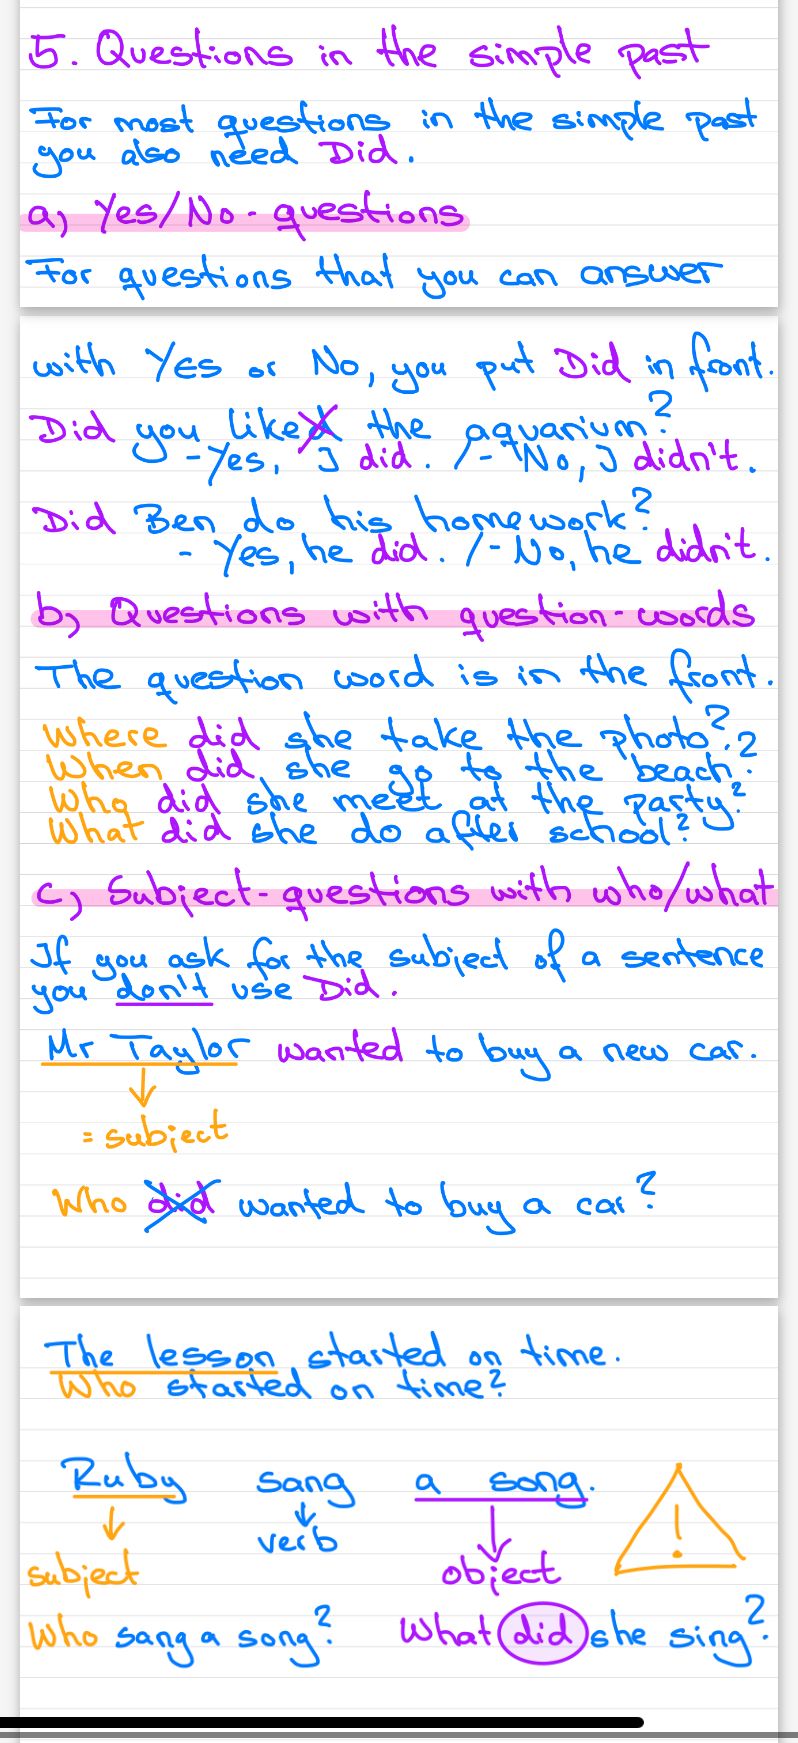 5. Questions in the simple past
For most questions in the simple past
you also need Did.
a) Yes/No-questions
For questions that you can answer
with Yes or No, you put Did in front.
Did you liked the aquarium?
-Yes, I did. /-No, I didn't.
Did Ben do his homework?
- Yes, he did. /-No, he didn't.
b) Questions with question-words
The question word is in the front.
Where did she take the photo?
When did she go to the beach?
Who did she meet at the party?
What did she do after school?
c) Subject-questions with who/what
If you ask for the subject of a sentence
you don't use Did.
Mr Taylor wanted to buy a new car.
= subject
Who did wanted to buy a car?
The lesson started on time.
Who started on time?
Ruby sang a song. !
verb
subject object
Who sang a song? What did she sing?